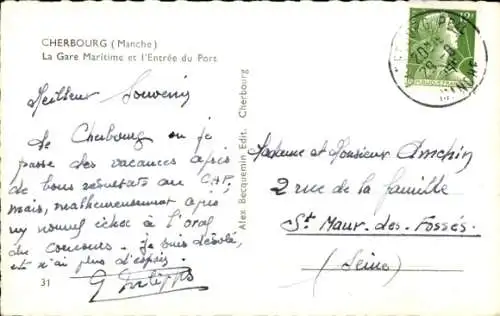 CHERBOURG (Manche)
La Gare Maritime et l'Entrée du Port
Meilleur Souvenir
de Cherbourg ou je
passe des vacances après
de bons résultats au C.A.P.
mais, malheureusement après
un nouvel échec à l'oral
du concours. je suis désolé,
et n'ai plus d'espoir.
31
Alex Becquemin Edit. Cherbourg
12F
REPUBLIQUE FRANÇAISE
Madame et Monsieur Amchin
2 rue de la famille
St Maur-des-Fossés.
(Seine)